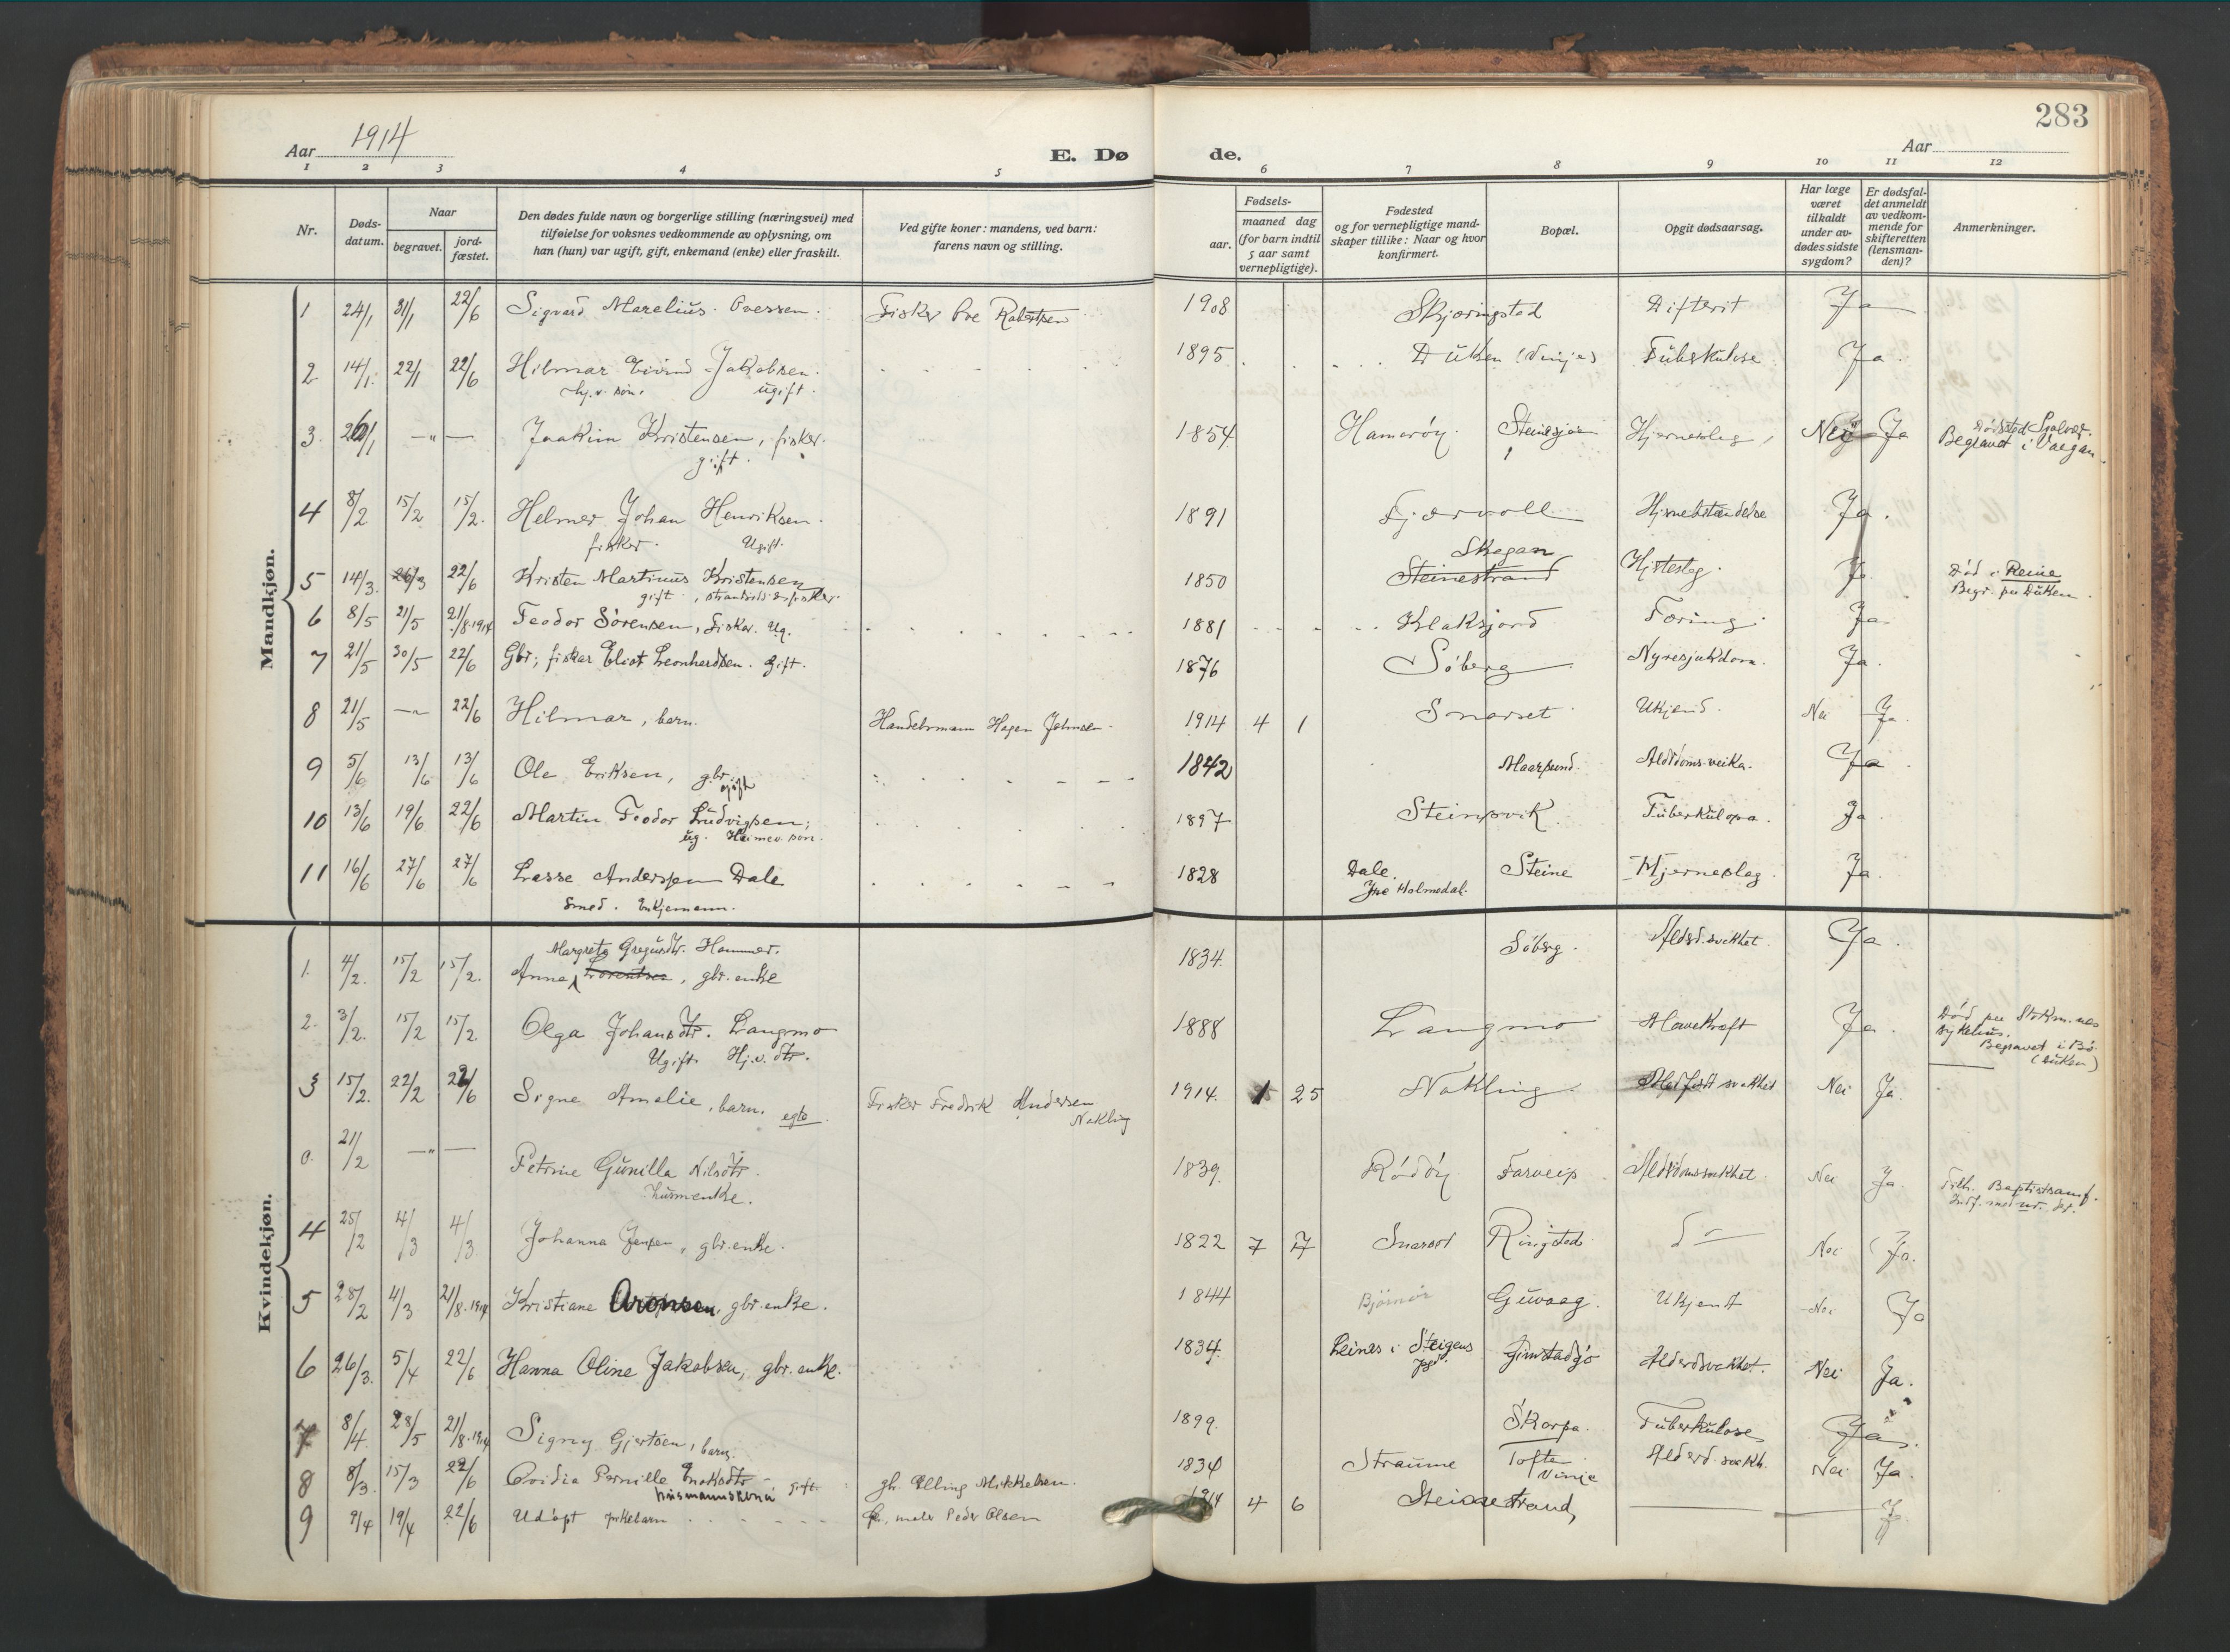 283
Aar 1914
E. Dø
de.
Aar
1 2 3 4 5
6 7 8 9 10 11 12
Nr.
Døds-
datum.
Naar
begravet.
jord-
fæstet.
Den dødes fulde navn og borgerlige stilling (næringsvei) med
tilføielse for voksnes vedkommende av oplysning, om
han (hun) var ugift, gift, enkemand (enke) eller fraskilt.
Ved gifte koner: mandens, ved barn:
farens navn og stilling.
Fødsels-
aar.
maaned dag
(for barn indtil
5 aar samt
vernepligtige).
Fødested
og for vernepligtige mand-
skaper tillike: Naar og hvor
konfirmert.
Bopæl.
Opgit dødsaarsag.
Har læge
været
tilkaldt
under av-
dødes sidste
sygdom?
Er dødsfal-
det anmeldt
av vedkom-
mende for
skifteretten
(lensman-
den)?
Anmerkninger.
Mandkjøn.
1 24/1 31/1 22/6 Sigvard Marelius Ovessen. Fisker Ove Robertsen 1908 Skjøringstad Difterit Ja
2 14/1. 22/1 22/6 Hilmar Eivind Jakobsen. 1895 Duken (Vinje) Tuberkulose Ja.
hj.v. søn. ugift.
3. 26/1 —"— Joakim Kristensen, fisker. 1854 Hamerøy Hjerneslag, Nei Ja Dødsted Svolvær.
gift. Begravet i Vaagan.
4 8/2 15/2 15/2. Helmer Johan Henriksen. 1891 Fjærvoll Ja.
fisker. Ugift.
5 14/3. 26/3 22/6 Kristen Martinus Kristensen 1850 Skogan Hjteslag. Ja Død i Reine
gift, Steinestrand Begr. paa Duken.
6 8/5 21/5 21/8.1914 Teodor Sørensen, Fisker. Ug. 1881 Klaksjord Tæring. Ja
7 21/5 30/5 22/6 Gbr; fisker Eliot Leonhardsen. Gift. 1876 Søberg Nyresjukdom. Ja.
8 21/5 —"— 22/6 Hilmar, barn. Handelsmann Hagen Johnsen 1914 4 1 Snarset Ukjend. Nei Ja.
9 5/6 13/6 13/6 Ole Eriksen, gbr. 1842 Maarsund. Alderdoms-veika. Ja.
gift
10 13/6 19/6 22/6 Martin Teodor Ludvigsen; 1897 Steinsvik Tuberkulosa. Ja
ug. Heimev. søn.
11 16/6 27/6 27/6 Lasse Anderssen Dale 1828 Dale. Steine Hjerneslag. Ja.
Smed. Enkjemann. Yre Holmedal.
Kvindekjøn.
Margrete Gregusdtr. Hammer.
1. 4/2. 15/2 15/2. Anna Lorentsen, gbr. enke 1834. Søberg. Alderd.svakhet. Ja.
2. 3/2. 15/2 15/2. Olga Johansdtr. Langmo 1888 Langmo Mavekræft Ja. Død paa Stokm.nes
Ugift. Hj.v. dtr. sykehus.
Begravet i Bø
(Duken)
3 15/2. 22/2 22/6 Signe Amalie, barn. egte. Fisker Fredrik Andersen 1914. 1 25 Nokling Medfødt svakhet Nei Ja.
Nokling
0. 21/2 —"— Petrine Gunilla Nilsdtr. 1839. Rødøy Farveip Alderdomssvakhet. Nei Ja. Tilh. Baptistsamf.
husmenke.
4 25/2 4/3 4/3. Johanna Jensen, gbr. enke. 1822 7 7 Snarset Ringstad do Nei Ja.
5 28/2 4/3 21/8.1914 Kristiane Aronsen, gbr. enke. 1844 Bjørnør Guvaag. Ukjent Nei Ja
6 26/3. 5/4 22/6 Hanna Oline Jakobsen, gbr. enke. 1834. Leines i Steigens Gimstadjø Alderdsvakhet. Nei Ja.
7 8/4. 28/5 21/8.1914 Signy Gjertsen, barn. 1899. Skorpa. Tuberkulose Ja.
8 8/3. 15/3 22/6 Ovidia Pernille Enoksdtr. gift. gb. Elling Mikkelsen. 1834 Straume Tofte Alderd. svakh. Nei Ja.
husmannskona Vinje
9 9/4 19/4 22/6 Udøpt pikebarn maler Peder Olsen 1914 4 6 Steinestrand J